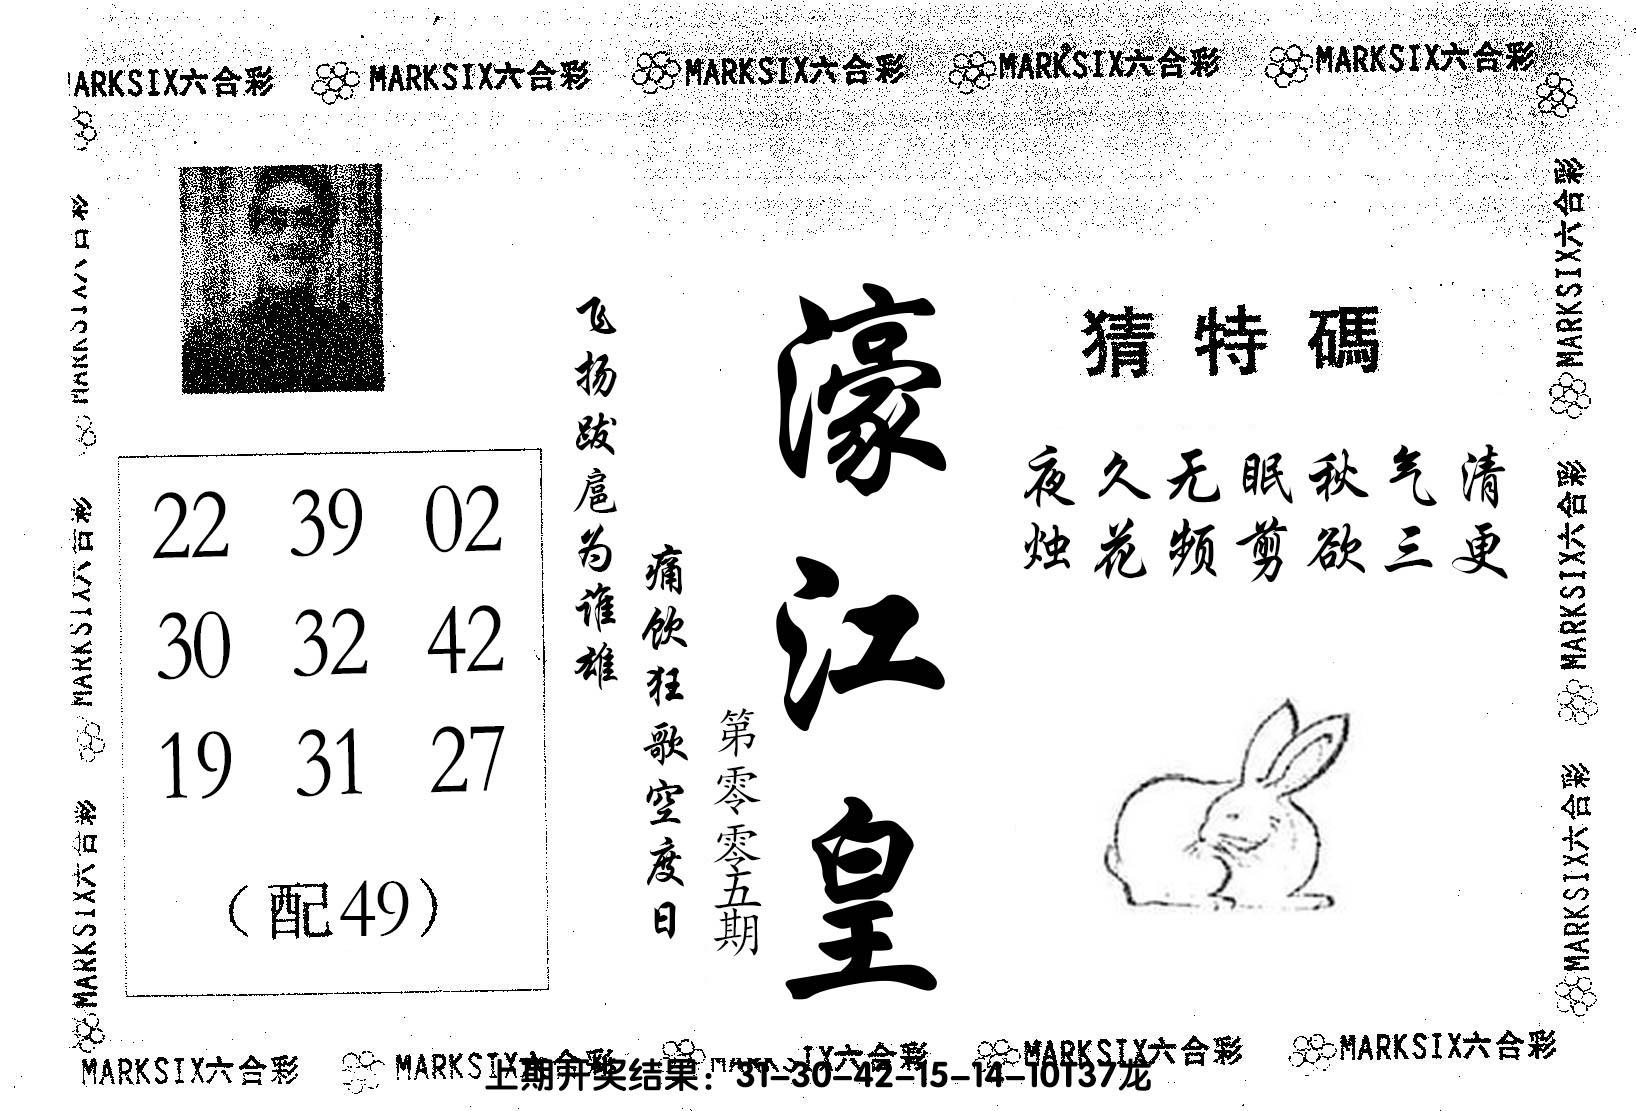 MARKSIX六合彩 MARKSIX六合彩 MARKSIX六合彩 MARKSIX六合彩 MARKSIX六合彩
猜特碼
夜久无眠秋气清
烛花频剪欲三更
濠江皇
第零零五期
痛饮狂歌空度日
飞扬跋扈为谁雄
22 39 02
30 32 42
19 31 27
（配49）
MARKSIX六合彩
MARKSIX六合彩
MARKSIX六合彩
MARKSIX六合彩
MARKSIX六合彩
MARKSIX六合彩
MARKSIX六合彩 MARKSIX六合彩 MARKSIX六合彩 MARKSIX六合彩 MARKSIX六合彩
上期开奖结果：31-30-42-15-14-10T37龙